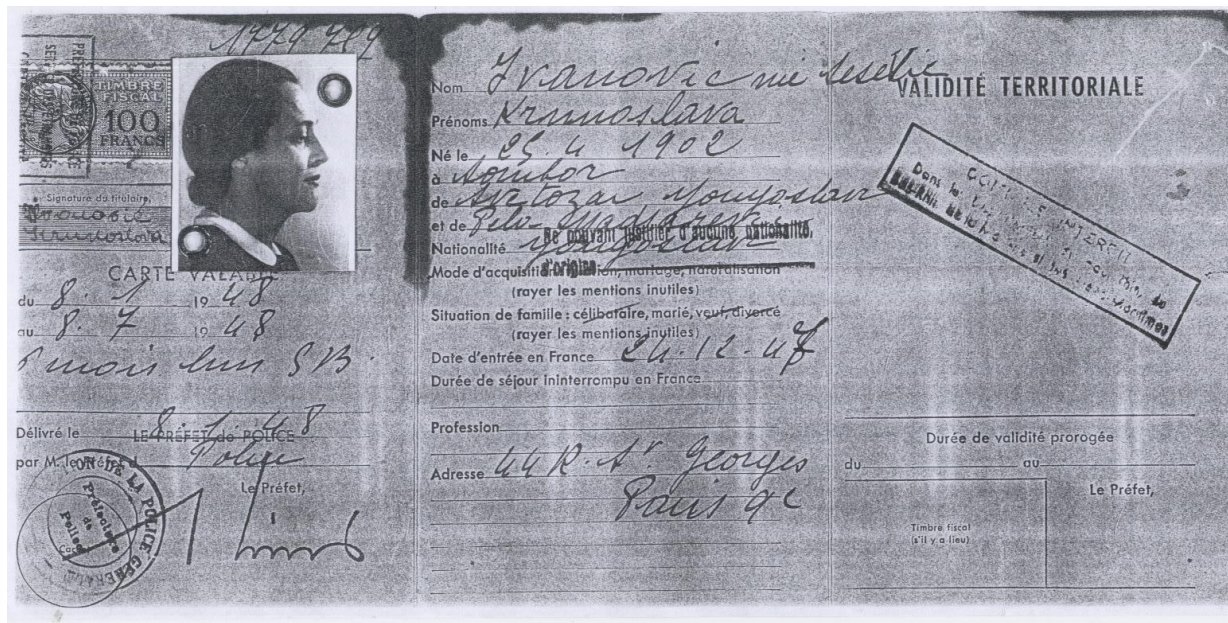 1779789
TIMBRE
FISCAL
100
FRANCS
Signature du titulaire,
Ivanović
Krunoslava
CARTE VALABLE
du 8. 1 1948
au 8. 7 1948
Délivré le 8. 1. 48
LE PRÉFET de POLICE
par M. le Préfet d Police
Le Préfet,
ON DE LA POLICE GÉNÉRALE
Préfecture
de
Police
Nom Ivanović née
Prénoms Krunoslava
Né le 25. 4 1902
à Sombor
de yougoslave
et de
Ne pouvant justifier d'aucune nationalité.
Nationalité yougoslave
d'origine
Mode d'acquisition, mariage, naturalisation
(rayer les mentions inutiles)
Situation de famille : célibataire, marié, veuf, divorcé
(rayer les mentions inutiles)
Date d'entrée en France 24.12.47
Durée de séjour ininterrompu en France
Profession
Adresse 44 R. St Georges
Paris 9e
VALIDITÉ TERRITORIALE
Durée de validité prorogée
du au
Le Préfet,
Timbre fiscal
(s'il y a lieu)